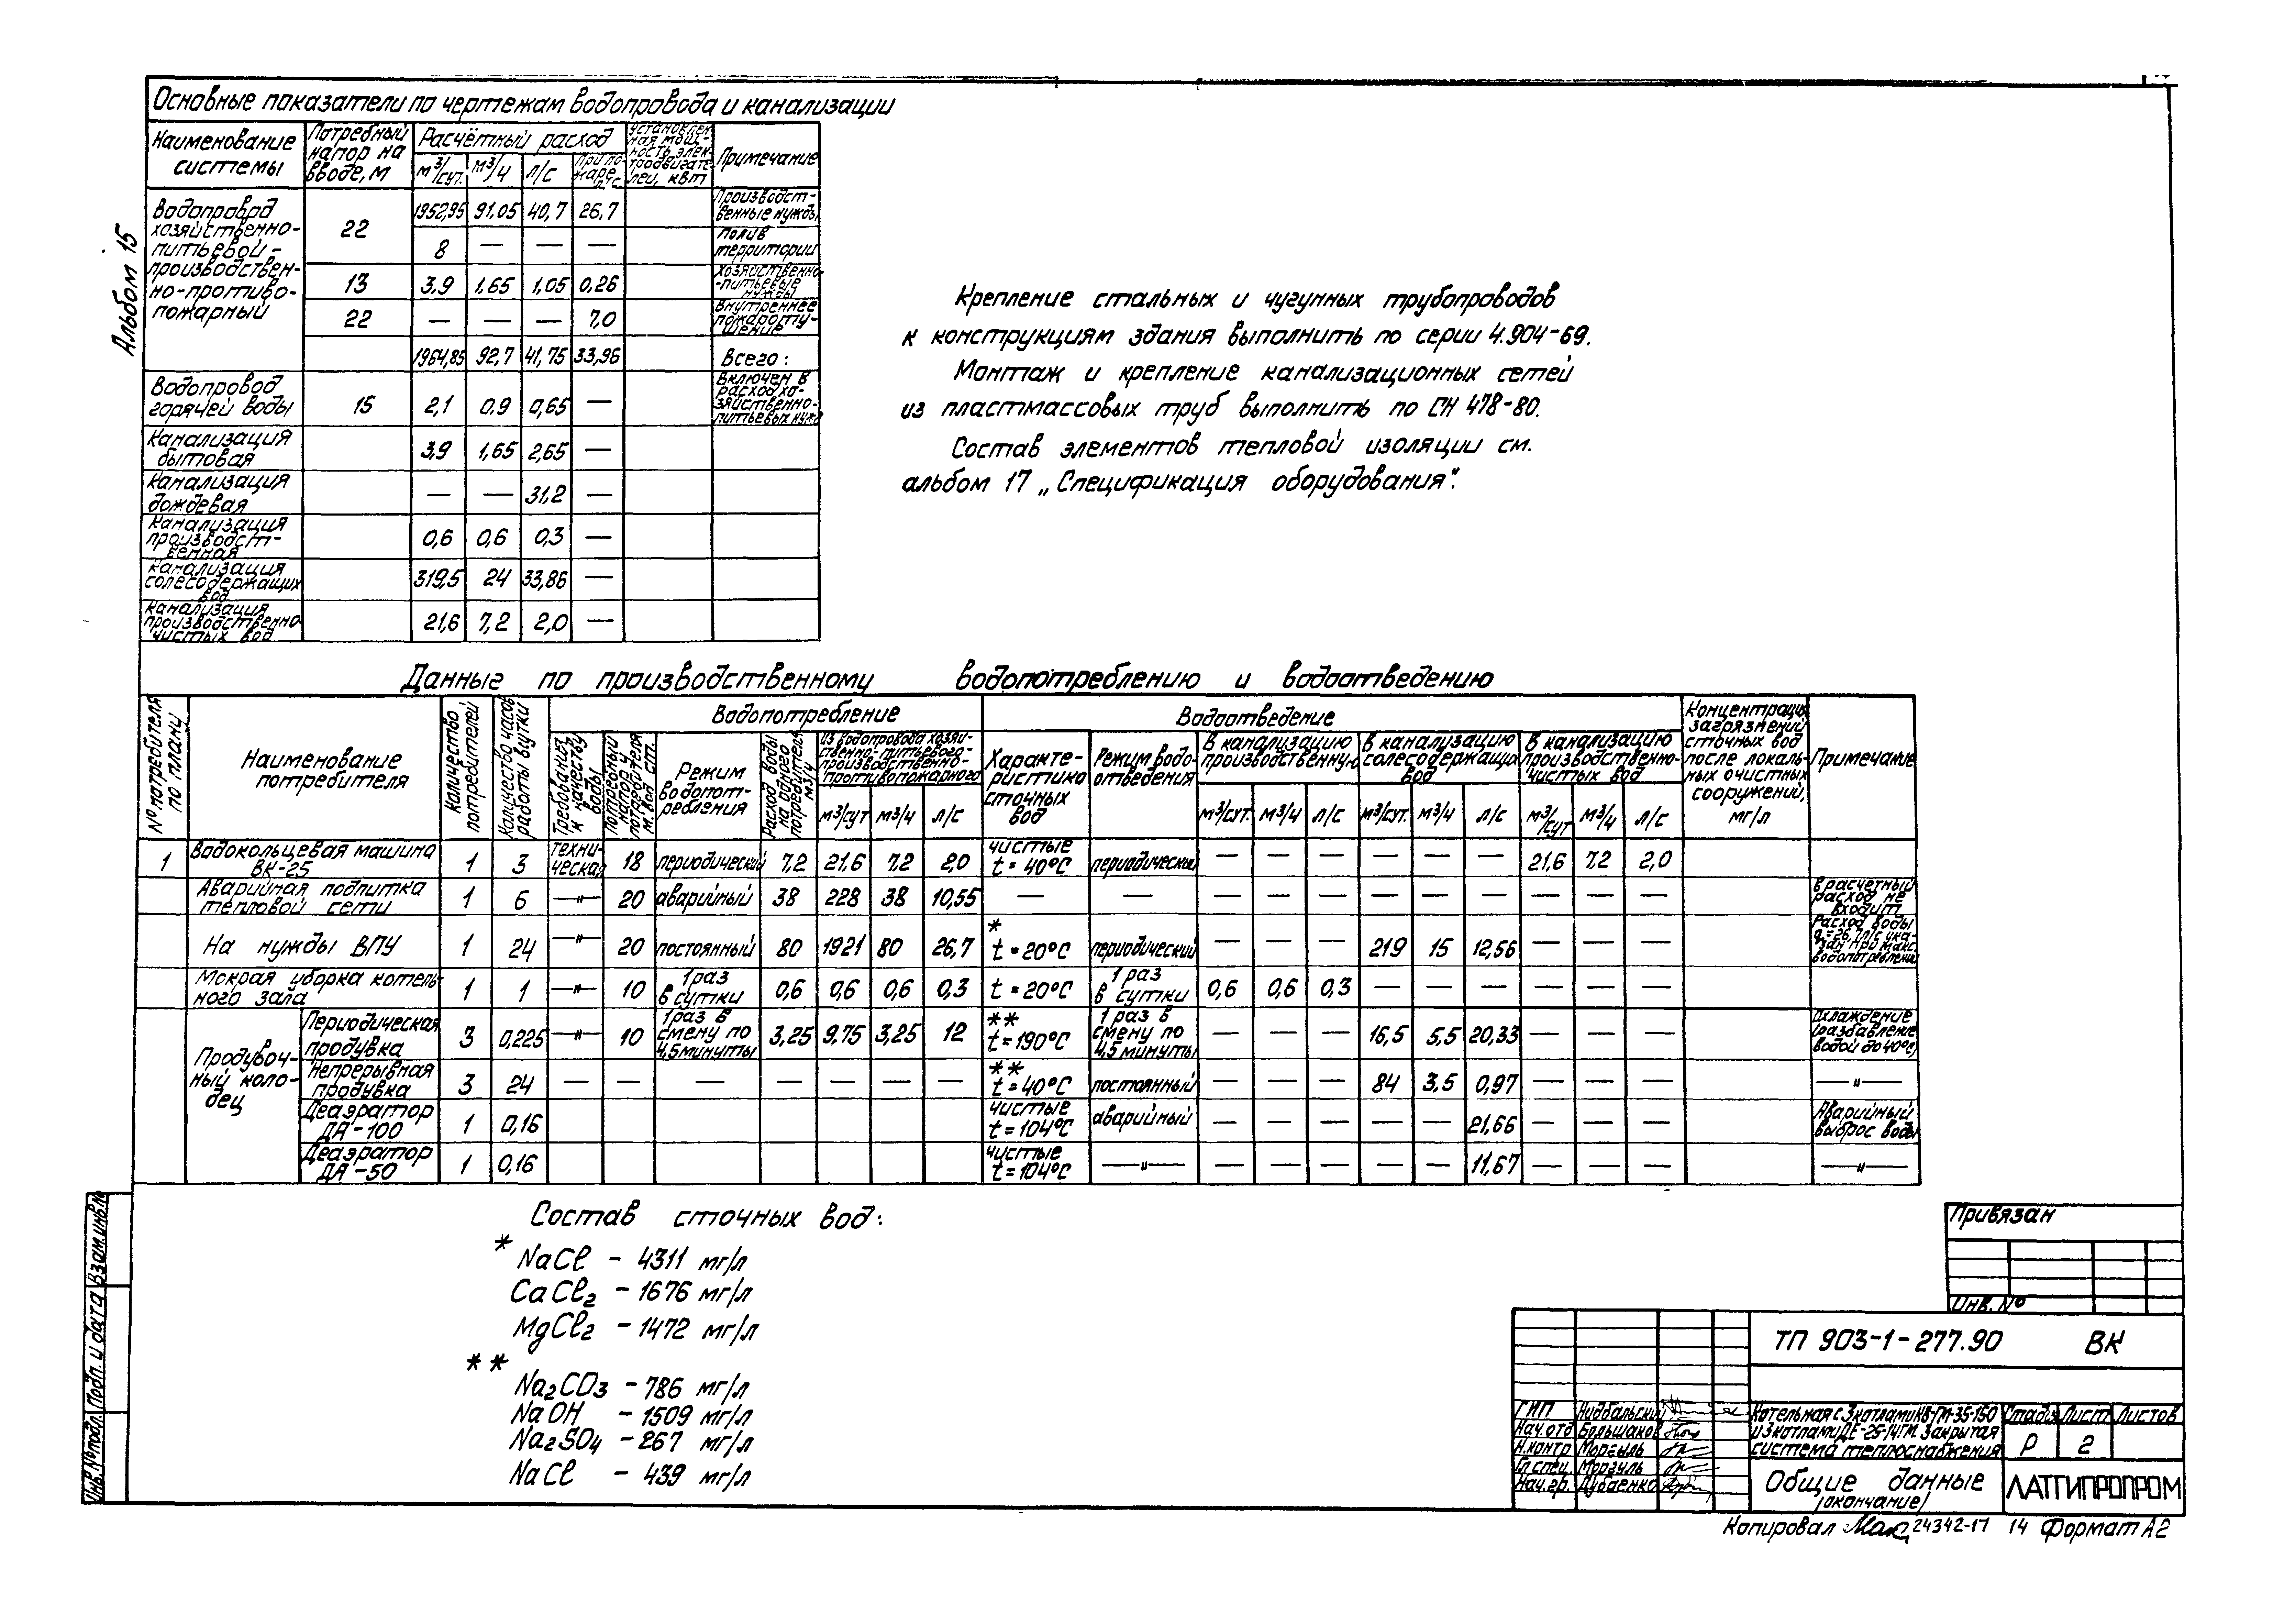 Альбом 15
Основные показатели по чертежам водопровода и канализации
Наименование системы | Потребный напор на вводе, м | Расчётный расход | Установленная мощность электродвигателей, квт | Примечание
м³/сут. | м³/ч | л/с | При пожаре, л/с
Водопровод хозяйственно-питьевой-производственно-противопожарный | 22 | 1952,95 | 91,05 | 40,7 | 26,7 | Производственные нужды
8 | — | — | — | полив территории
13 | 3,9 | 1,65 | 1,05 | 0,26 | хозяйственно-питьевые нужды
22 | — | — | — | 7,0 | внутреннее пожаротушение
1964,85 | 92,7 | 41,75 | 33,96 | Всего:
Водопровод горячей воды | 15 | 2,1 | 0,9 | 0,65 | — | Включен в расход хозяйственно-питьевых нужд
Канализация бытовая | 3,9 | 1,65 | 2,65 | —
Канализация дождевая | — | — | 31,2 | —
Канализация производственная | 0,6 | 0,6 | 0,3 | —
Канализация солесодержащих вод | 319,5 | 24 | 33,86 | —
Канализация производственно-чистых вод | 21,6 | 7,2 | 2,0 | —
Крепление стальных и чугунных трубопроводов
к конструкциям здания выполнить по серии 4.904-69.
Монтаж и крепление канализационных сетей
из пластмассовых труб выполнить по СН 478-80.
Состав элементов тепловой изоляции см.
альбом 17 „Спецификация оборудования".
Данные по производственному водопотреблению и водоотведению
№ потребителя по плану | Наименование потребителя | Количество потребителей | Количество часов работы в сутки | Водопотребление | Водоотведение | Концентрация загрязнений сточных вод после локальных очистных сооружений, мг/л | Примечание
Требования к качеству воды | Потребный напор у потребителя м. вод. ст. | Режим водопотребления | Расход воды на одного потребителя м³/ч | Из водопровода хозяйственно-питьевого-производственно-противопожарного | Характеристика сточных вод | Режим водоотведения | В канализацию производственную | В канализацию солесодержащих вод | В канализацию производственно-чистых вод
м³/сут | м³/ч | л/с | м³/сут. | м³/ч | л/с | м³/сут. | м³/ч | л/с | м³/сут | м³/ч | л/с
1 | Водокольцевая машина ВК-25 | 1 | 3 | техническая | 18 | периодический | 7,2 | 21,6 | 7,2 | 2,0 | чистые t=40°С | периодический | — | — | — | — | — | — | 21,6 | 7,2 | 2,0
Аварийная подпитка тепловой сети | 1 | 6 | —"— | 20 | аварийный | 38 | 228 | 38 | 10,55 | — | — | — | — | — | — | — | — | — | — | — | В расчетный расход не входит
На нужды ВПУ | 1 | 24 | —"— | 20 | постоянный | 80 | 1921 | 80 | 26,7 | * t=20°С | периодический | — | — | — | 219 | 15 | 12,56 | — | — | — | Расход воды q=26,7л/с указан при макс. водопотреблении
Мокрая уборка котельного зала | 1 | 1 | —"— | 10 | 1раз в сутки | 0,6 | 0,6 | 0,6 | 0,3 | t=20°С | 1 раз в сутки | 0,6 | 0,6 | 0,3 | — | — | — | — | — | —
Продувочный колодец | Периодическая продувка | 3 | 0,225 | —"— | 10 | 1раз в смену по 4,5минуты | 3,25 | 9,75 | 3,25 | 12 | ** t=190°С | 1 раз в смену по 4,5 минуты | — | — | — | 16,5 | 5,5 | 20,33 | — | — | — | Охлаждение (разбавление водой до 40°С)
Непрерывная продувка | 3 | 24 | — | — | — | — | — | — | — | ** t=40°С | постоянный | — | — | — | 84 | 3,5 | 0,97 | — | — | — | —"—
Деаэратор ДА-100 | 1 | 0,16 | чистые t=104°С | аварийный | — | — | — | — | — | 21,66 | — | — | — | Аварийный выброс воды
Деаэратор ДА-50 | 1 | 0,16 | чистые t=104°С | —"— | — | — | — | — | — | 11,67 | — | — | — | —"—
Состав сточных вод:
* NaCl - 4311 мг/л
CaCl₂ - 1676 мг/л
MgCl₂ - 1472 мг/л
**
Na₂CO₃ - 786 мг/л
NaOH - 1509 мг/л
Na₂SO₄ - 267 мг/л
NaCl - 439 мг/л
Привязан
Инв. №
ТП 903-1-277.90 ВК
ГИП Нидбальский
Нач.отд Большаков
Н.контр Моргуль
Гл.спец. Моргуль
Нач.гр. Дубаенко
Котельная с 3 котлами КВ-ГМ-35-150
и 3 котлами ДЕ-25-14ГМ. Закрытая
система теплоснабжения
Стадия Лист Листов
Р 2
Общие данные
(окончание)
ЛАТГИПРОПРОМ
Копировал 24342-17 14 Формат А2
Инв. № подл. Подп. и дата Взам.инв.№